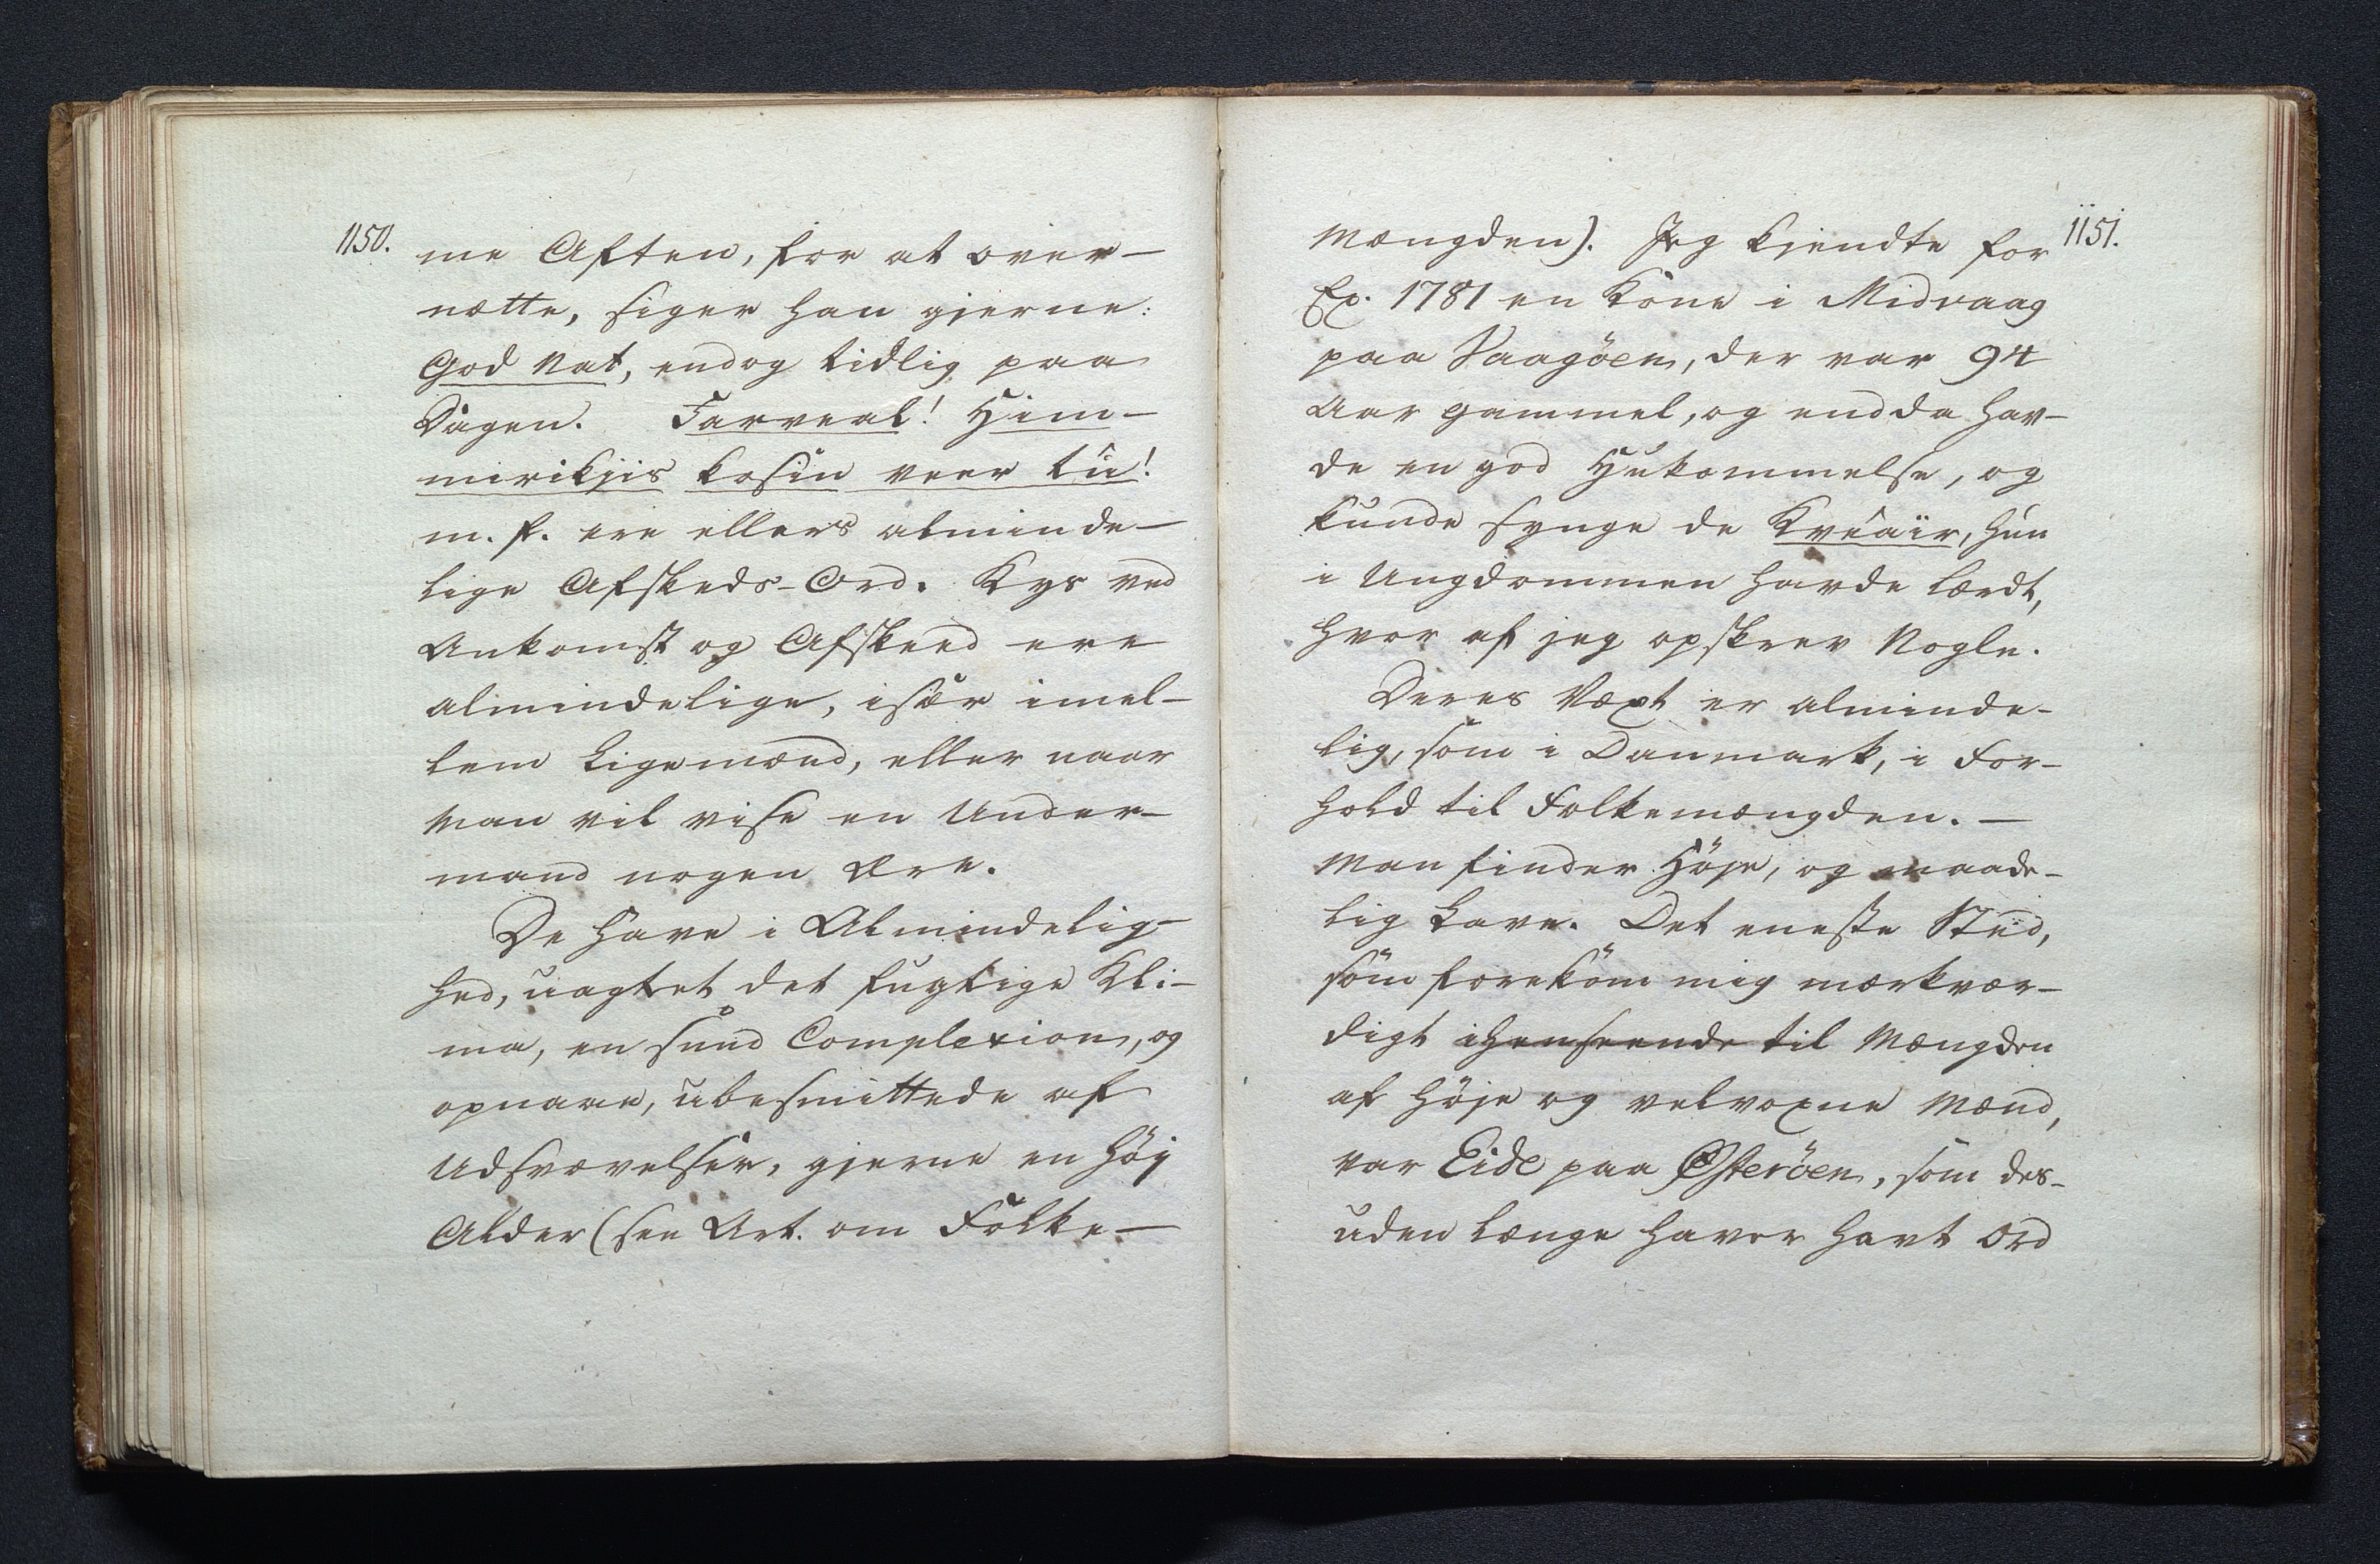 1150.
me Aften, for at over-
nætte, siger han gjerne:
God Nat, endog tidlig paa
Dagen. Farveal! Him-
mirikjis kosin veer tû!
m. fl. ere ellers alminde-
lige Afskeds-Ord. Kys ved
Ankomst og Afskeed ere
almindelige, især imel-
lem Ligemænd, eller naar
Man vil vise en Under-
mand nogen Ære.
De have i Almindelig-
hed, uagtet det fugtige Kli-
ma, en sund Complexion, og
opnaae, ubesmittede af
Udsvævelser, gjerne en høj
Alder (see Art. om Folke-
1151.
Mængden). Jeg kjendte for
Ex. 1781 en Kone i Midvaag
paa Vaagöen, der var 94
Aar gammel, og endda hav-
de en god Hukommelse, og
kunde synge de Kvéäir, hun
i Ungdommen havde lærdt,
hvor af jeg opskrev Nogle.
Deres Væxt er alminde-
lig, som i Danmark, i For-
hold til Folkemængden. -
Man finder Höje, og maade-
lig Lave. Det eneste Sted,
som forekom mig mærkvær-
digt ihenseende til Mængden
af höje og velvoxne Mænd,
var Eide paa Østeröen, som des-
uden længe haver havt Ord